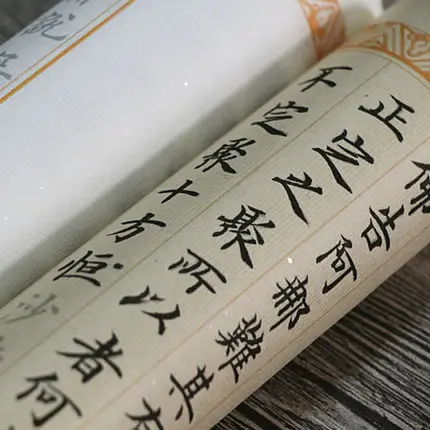 佛告阿那難其有
正定之聚所以者何
不定聚十方恒沙